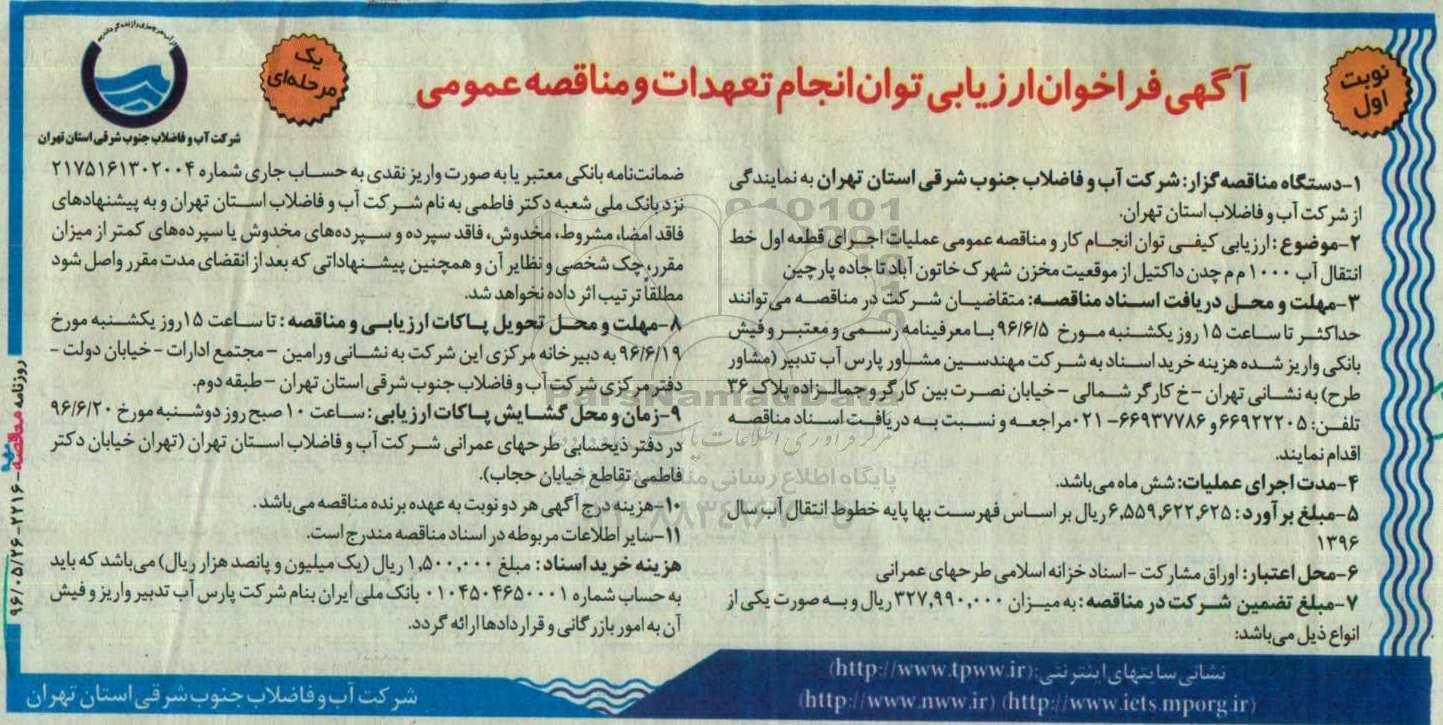 نوبت
اول
آگهی فراخوان ارزیابی توان انجام تعهدات و مناقصه عمومی
یک
مرحله‌ای
شرکت آب و فاضلاب جنوب شرقی استان تهران
۱-دستگاه مناقصه‌گزار: شرکت آب و فاضلاب جنوب شرقی استان تهران به نمایندگی
از شرکت آب و فاضلاب استان تهران.
۲-موضوع: ارزیابی کیفی توان انجام کار و مناقصه عمومی عملیات اجرای قطعه اول خط
انتقال آب ۱۰۰۰ م م چدن داکتیل از موقعیت مخزن شهرک خاتون آباد تا جاده پارچین
۳-مهلت و محل دریافت اسناد مناقصه: متقاضیان شرکت در مناقصه می‌توانند
حداکثر تا ساعت ۱۵ روز یکشنبه مورخ ۹۶/۶/۵ با معرفینامه رسمی و معتبر و فیش
بانکی واریز شده هزینه خرید اسناد به شرکت مهندسین مشاور پارس آب تدبیر (مشاور
طرح) به نشانی تهران -خ کارگر شمالی - خیابان نصرت بین کارگر و جمالزاده پلاک ۳۶
تلفن: ۶۶۹۲۲۲۰۵ و ۶۶۹۳۷۷۸۶-۰۲۱ مراجعه و نسبت به دریافت اسناد مناقصه
اقدام نمایند.
۴-مدت اجرای عملیات: شش ماه می‌باشد.
۵-مبلغ برآورد: ۶,۵۵۹,۶۲۲,۶۲۵ ریال بر اساس فهرست بها پایه خطوط انتقال آب سال
۱۳۹۶
۶-محل اعتبار: اوراق مشارکت -اسناد خزانه اسلامی طرحهای عمرانی
۷-مبلغ تضمین شرکت در مناقصه: به میزان ۳۲۷,۹۹۰,۰۰۰ ریال و به صورت یکی از
انواع ذیل می‌باشد:
ضمانت‌نامه بانکی معتبر یا به صورت واریز نقدی به حساب جاری شماره ۲۱۷۵۱۶۱۳۰۲۰۰۴
نزد بانک ملی شعبه دکتر فاطمی به نام شرکت آب و فاضلاب استان تهران و به پیشنهادهای
فاقد امضا، مشروط، مخدوش، فاقد سپرده و سپرده‌های مخدوش یا سپرده‌های کمتر از میزان
مقرر، چک شخصی و نظایر آن و همچنین پیشنهاداتی که بعد از انقضای مدت مقرر واصل شود
مطلقاً ترتیب اثر داده نخواهد شد.
۸-مهلت و محل تحویل پاکات ارزیابی و مناقصه: تا ساعت ۱۵ روز یکشنبه مورخ
۹۶/۶/۱۹ به دبیرخانه مرکزی این شرکت به نشانی ورامین - مجتمع ادارات - خیابان دولت -
دفتر مرکزی شرکت آب و فاضلاب جنوب شرقی استان تهران - طبقه دوم.
۹-زمان و محل گشایش پاکات ارزیابی: ساعت ۱۰ صبح روز دوشنبه مورخ ۹۶/۶/۲۰
در دفتر ذیحسابی طرحهای عمرانی شرکت آب و فاضلاب استان تهران (تهران خیابان دکتر
فاطمی تقاطع خیابان حجاب).
۱۰-هزینه درج آگهی هر دو نوبت به عهده برنده مناقصه می‌باشد.
۱۱-سایر اطلاعات مربوطه در اسناد مناقصه مندرج است.
هزینه خرید اسناد: مبلغ ۱,۵۰۰,۰۰۰ ریال (یک میلیون و پانصد هزار ریال) می‌باشد که باید
به حساب شماره ۰۱۰۴۵۰۴۶۵۰۰۰۱ بانک ملی ایران بنام شرکت پارس آب تدبیر واریز و فیش
آن به امور بازرگانی و قراردادها ارائه گردد.
نشانی سایتهای اینترنتی: (http://www.tpww.ir)
(http://www.nww.ir) (http://www.iets.mporg.ir)
شرکت آب و فاضلاب جنوب شرقی استان تهران
روزنامه مناقصه - ۲۲۱۶ - ۹۶/۰۵/۲۶
ParsNamadData